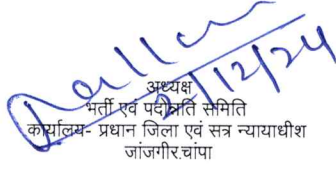 2/12/24
अध्यक्ष
भर्ती एवं पदोन्नति समिति
कार्यालय- प्रधान जिला एवं सत्र न्यायाधीश
जांजगीर.चांपा